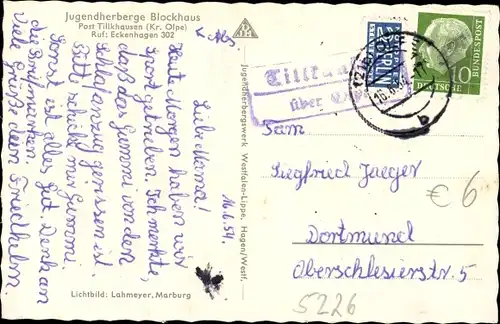 Jugendherberge Blockhaus
Post Tillkhausen (Kr. Olpe)
Ruf: Eckenhagen 302
16.6.54
Liebe Mama!
Heute Morgen haben wir
Sport getrieben. Ich merkte,
daß das Gummi von den
Schlafanzug gerissen ist.
Bitte schickt mir Gummi.
Sonst ist alles gut. Denk an
die Briefmarken
Viele Grüße dein Friedhelm
Lichtbild: Lahmeyer, Marburg
Jugendherbergswerk Westfalen-Lippe, Hagen/Westf.
DJH
über
10
DEUTSCHE
BUNDESPOST
b
Fam
Siegfried Jaeger
Dortmund
Oberschlesierstr. 5
€ 6
5226